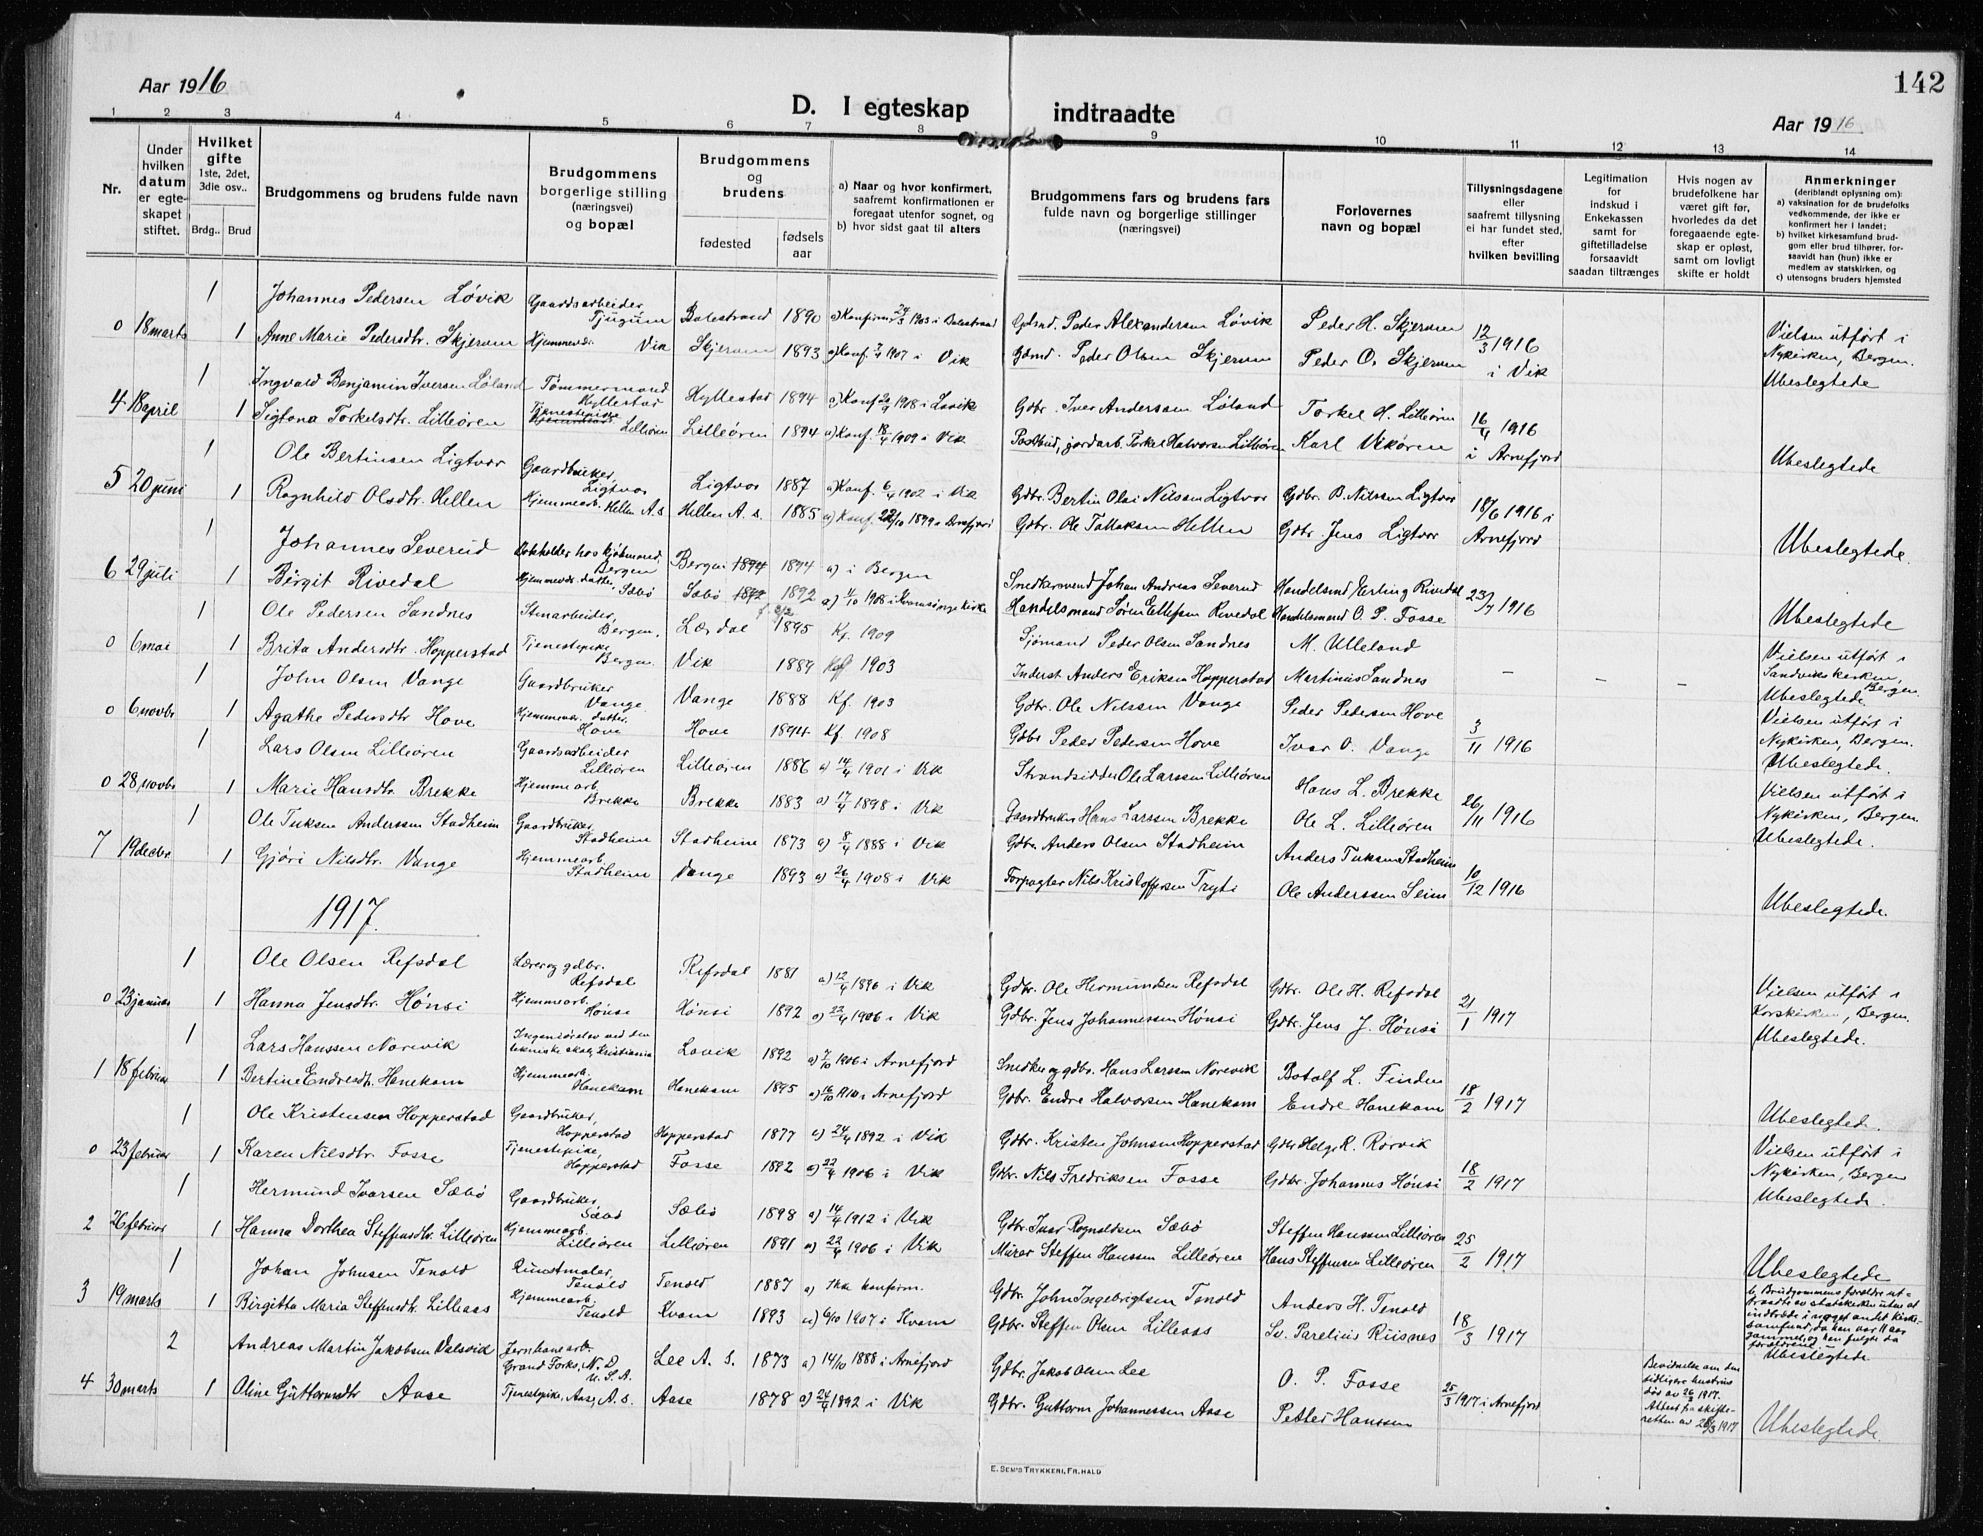 142
Aar 1916
D. I egteskap indtraadte
Aar 1916
1 2 3 4 5 6 7 8 9 10 11 12 13 14
Nr.
Under hvilken datum er egteskapet stiftet.
Hvilket gifte 1ste, 2det, 3die osv..
Brdg.. Brud
Brudgommens og brudens fulde navn
Brudgommens borgerlige stilling (næringsvei) og bopæl
Brudgommens og brudens
fødested
fødsels aar
a) Naar og hvor konfirmert, saafremt konfirmationen er foregaat utenfor sognet, og
b) hvor sidst gaat til alters
Brudgommens fars og brudens fars fulde navn og borgerlige stillinger (næringsvei)
Forlovernes navn og bopæl
Tillysningsdagene eller saafremt tillysning ei har fundet sted, efter hvilken bevilling
Legitimation for indskud i Enkekassen samt for giftetilladelse forsaavidt saadan tiltrænges
Hvis nogen av brudefolkene har været gift før, hvorledes da det foregaaende egteskap er opløst, samt om lovligt skifte er holdt
Anmerkninger (deriblandt oplysning om):
a) vaksination for de brudefolks vedkommende, der ikke er konfirmert her i landet;
b) hvilket kirkesamfund brudgom eller brud tilhører, forsaavidt han (hun) ikke er medlem av statskirken, og
c) utensogns bruders hjemsted
1 Johannes Pedersen Løvik Gaardsarbeider Tjugum Balestrand 1890 1903 i Balestrand Gdmd. Peder Alexandersen Løvik Peder H. Skjerven 12/3 1916 i Vik Vielsen utført i Nykirken, Bergen.
0 18 marts 1 Anne Marie Pedersdtr. Skjerven Vik Skjerven 1893 a) Konf. 7/4 1907 i Vik Gdmd. Peder Olsen Skjerven Peder O. Skjerven Ubeslegtede
1 Ingvald Benjamin Iversen Løland Tømmermand Hyllestad Hyllestad 1894 1908 i Lavik Gdbr. Iver Andersen Løland Torkel H. Lilleøren 16/4 1916 i Arnefjord
4 18 april 1 Sigtona Torkelsdtr. Lilleøren Tjenestepike Lilleøren Lilleøren 1894 a) Konf. 18/4 1909 i Vik Postbud, gardarb. Torkel Halvorsen Lilleøren Karl Vikøren Ubeslegtede
1 Ole Bertinsen Ligtvor Gaardbruker, Ligtvor Ligtvor 1887 a) Konf. 6/4 1902 i Vik Gdbr. Bertin Olai Nilssen Ligtvor Gdbr. B. Nilssen Ligtvor 18/6 1916 i Arnefjord
5 20 juni 1 Ragnhild Olsdtr. Hellen Hjemmearb. Hellen A.s Hellen A.s. 1885 a) Konf. 22/10 1899 i Arnefjord Gdbr. Ole Tollaksen Hellen Gdbr. Jens Ligtvor Ubeslegtede.
1 Johannes Severud Bokholder hos kjøbmand, Bergen Bergen 1894 1894 a) i Bergen Snedkersvend Johan Andreas Severud Handelsmd Erling Rivedal 23/7 1916
6 29 juli 1 Birgit Rivedal Hjemmevær. datter, Sæbø Sæbø 1892 1892 a) 4/10 1908 i Handelsmand Søren Ellefsen Rivedal Handelsmand O. P. Fosse Ubeslegtede
1 Ole Pedersen Sandnes Stenarbeider, Bergen. Lærdal 1895 Kf. 1909 Sjømand Peder Olsen Sandnes M. Ulleland Vielsen utført i Sandvikskirken, Bergen.
0 6 mai 1 Brita Andersdtr. Hopperstad Tjenestepike Bergen. Vik 1887 Konf 1903 Inderst Anders Eriksen Hopperstad Martinus Sandnes - - - Ubeslegtede
1 John Olsen Vange Gaardbruker Vange Vange 1888 Kf. 1903 Gdbr. Ole Nilssen Vange Peder Pedersen Hove 3/11 1916 Vielsen utført i Nykirken, Bergen.
0 6 novbr 1 Agathe Pedersdtr Hove Hjemmevær. datter. Hove Hove 1894 Kf. 1908 Gdbr Peder Pedersen Hove Ivar O. Vange Ubeslegtede.
1 Lars Olsen Lilleøren Gaardsarbeider Lilleøren Lilleøren 1886 a) 14/4 1901 i Vik Strandsidder Ole Larssen Lilleøren Hans L. Brekke 26/11 1916 Vielsen utført i Nykirken, Bergen.
0 28 novbr 1 Marie Hansdtr. Brekke Hjemmearb. Brekke Brekke 1883 a) 17/4 1898 i Vik Gaardbruker Hans Larssen Brekke Ole L. Lilleøren Ubeslegtede.
1 Ole Tuksen Anderssen Stadheim Gaardbruker, Stadheim Stadheim 1873 a) 8/4 1888 i Vik Gdbr. Anders Olsen Stadheim Anders Tuksen Stadheim 10/12 1916
7 19 decbr. 1 Gjøri Nilsdtr. Vange Hjemmearb. Stadheim Vange 1893 a) 26/4 1908 i Vik Forpagter Nils Kristoffersen Tryti Ole Anderssen Seim Ubeslegtede.
1917.
1 Ole Olsen Refsdal Lærer og gdbr. Refsdal Refsdal 1881 a) 12/4 1896 i Vik Gdbr. Ole Hermundsen Refsdal Gdbr. Ole H. Refsdal 21/1 1917 Vielsen utført i Korskirken, Bergen.
0 23 januar 1 Hanna Jensdtr. Hønsi Hjemmearb. Hønsi Hønsi 1892 a) 22/4 1906 i Vik Gdbr. Jens Johannessen Hønsi Gdbr. Jens J. Hønsi Ubeslegtede.
1 Lars Hanssen Norevik Ingeniørelev ved den tekniske skole, Kristiania Lavik 1892 a) 7/10 1906 i Arnefjord Snedker og gdbr. Hans Larssen Norevik Botolf L. Finden 18/2 1917
1 18 februar 1 Bertine Endresdtr. Hanekam Hjemmearb. Hanekam Hanekam 1895 a) 16/10 1910 i Arnefjord Gdbr. Endre Halvorsen Hanekam Endre Hanekam Ubeslegtede.
1 Ole Kristensen Hopperstad Gaardbruker, Hopperstad Hopperstad 1877 a) 24/4 1892 i Vik Gdbr. Kristen Johnsen Hopperstad Gdbr Helge R. Rorvik 18/2 1917 Vielsen utført i Nykirken, Bergen
0 23 februar 1 Karen Nilsdtr. Fosse Tjenestepike, Hopperstad Fosse 1892 a) 22/4 1906 i Vik Gdbr. Nils Fredriksen Fosse Gdbr. Johannes Hønsi Ubeslegtede.
1 Hermund Ivarsen Sæbø Gaardbruker Sæbø Sæbø 1898 a) 14/4 1912 i Vik Gdbr. Ivar Ragnaldsen Sæbø Steffen Hanssen Lilleøren 25/2 1917
2 26 februar 1 Hanna Dorthea Steffensdtr. Lilleøren Hjemmearb. Lilleøren Lilleøren 1891 a) 22/4 1906 i Vik Murer Steffen Hanssen Lilleøren Hans Steffensen Lilleøren Ubeslegtede
1 Johan Johnsen Tenold Kunstmaler, Tenold Tenold 1887 a) Ikke konfirm. Gdbr. John Ingebrigtsen Tenold Anders H. Tenold 18/3 1917 b, Brudgommens forældre uttraadte av statskirken uten at indtræde i noget andet kirkesamfund, da han var 11 aar gammel, og han fulgte da forældrene.
3 19 marts 1 Birgitta Maria Steffensdtr. Lilleaas Hjemmearb. Tenold Kvam 1893 a) 6/10 1907 i Kvam Gdbr. Steffen Olsen Lilleaas Sv. Parelius Risnes Ubeslegtede
2 Andreas Martin Jakobsen Valsvik Jernbanearb. Grand Forks, N. D. U. S. A. Lee A. S. 1873 a) 14/10 1888 i Arnefjord Gdbr. Jakob Olsen Lee O. P. Fosse 25/3 1917 i Arnefjord Bevidnelse om den tidligere hustrus død av 26/3 1917. Attest fra skifteretten av 26/3 1917
4 30 marts 1 Oline Guttormsdtr Aase Tjenestepike, Aase, A. s. Aase 1878 a) 24/4 1892 i Vik Gdbr. Guttorm Johannessen Aase Petter Hanssen Ubeslegtede.
E. SEM'S TRYKKERI, FR.HALD